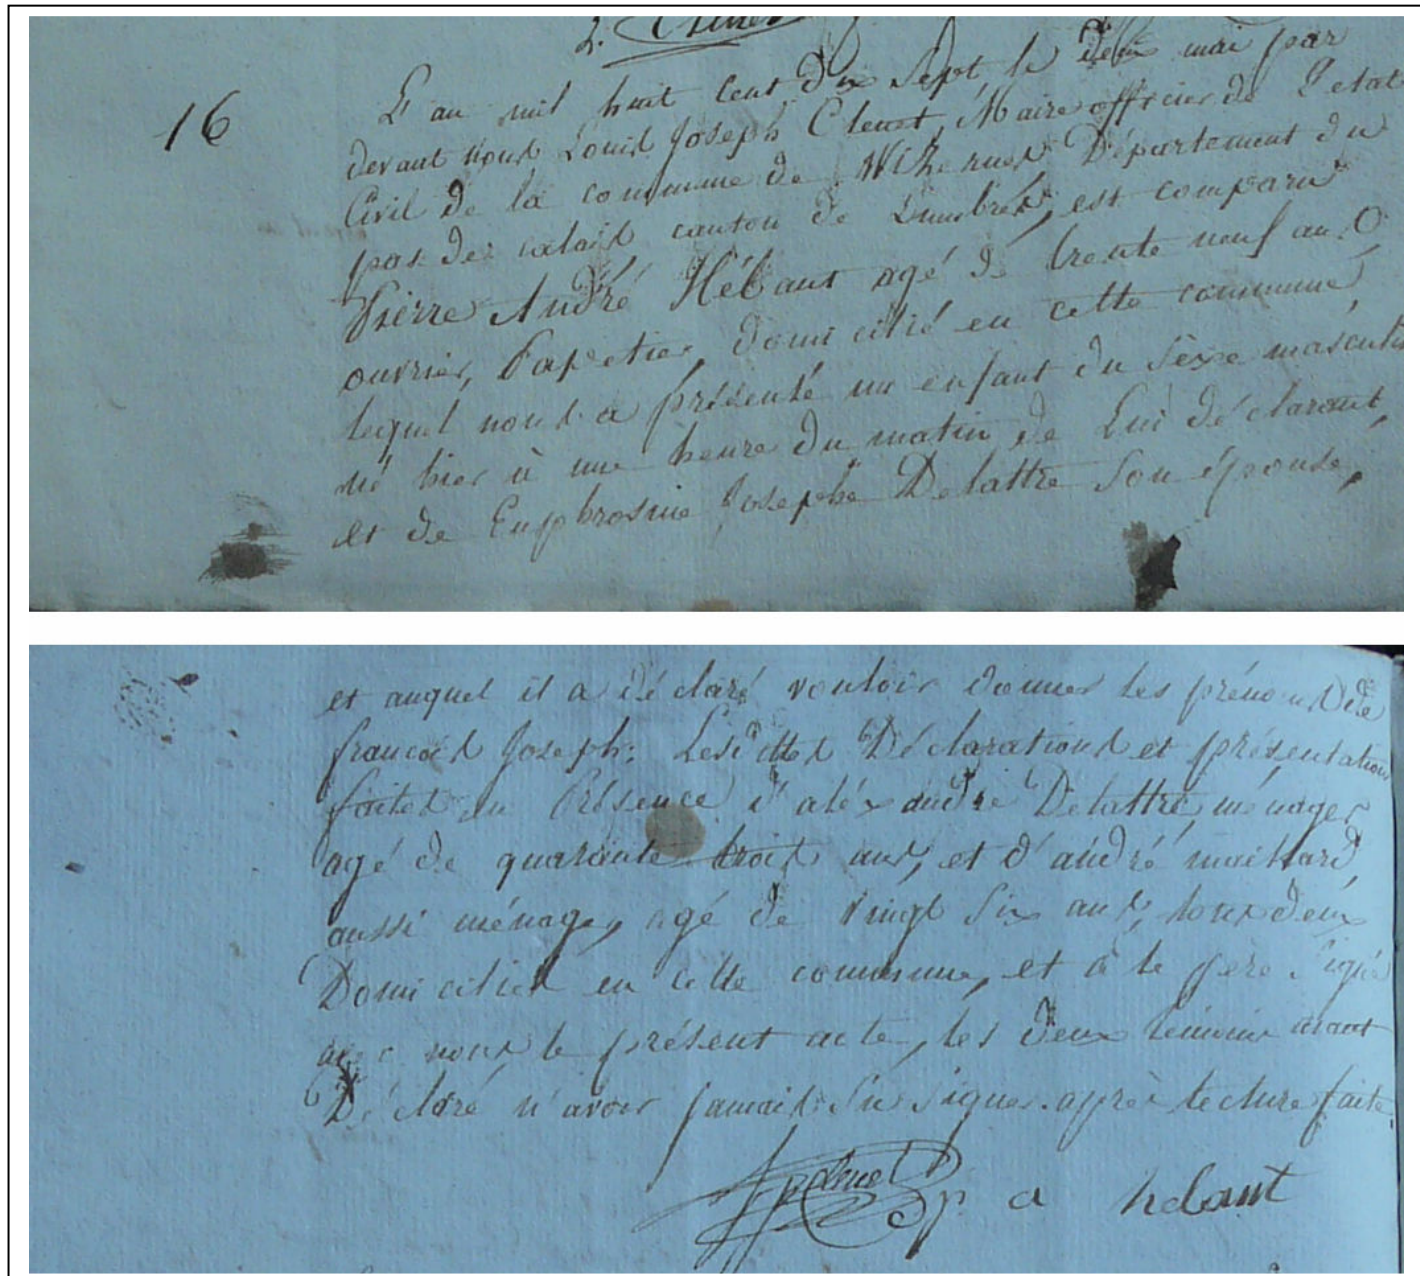 16
L'an mil huit Cent dix Sept, le deux mai par
devant nous Louis Joseph Clenet, Maire officier de l'etat
Civil de la commune de Wizernes Département du
pas de calais canton de Lumbres, est comparu
Pierre André Hébant agé de trente neuf ans
ouvrier Papetier, domicilié en cette commune,
lequel nous a présenté un enfant du Sèxe masculin
né hier à une heure du matin, de Lui déclarant,
et de Euphrosine Josephe Delattre Son épouse,
et auquel il a déclaré vouloir donner les prénoms de
françois Joseph: Lesdittes Déclarations et présentations
faites en Présence d'aléxandre Delattre, ménager
agé de quarante trois ans, et d'andré maillard,
aussi ménager, agé de vingt Six ans, tous deux
Domiciliés en cette commune, et à le père Signé
avec nous le présent acte, les deux témoins aiant
Déclaré n'avoir jamais Sû Signer. après lecture faite.
p a hebant